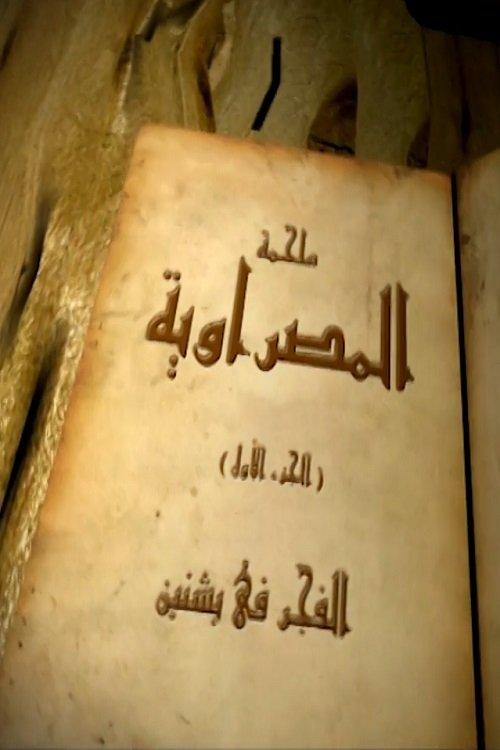 ملحمة
المصراوية
( الجزء الأول )
الفجر في بشنين